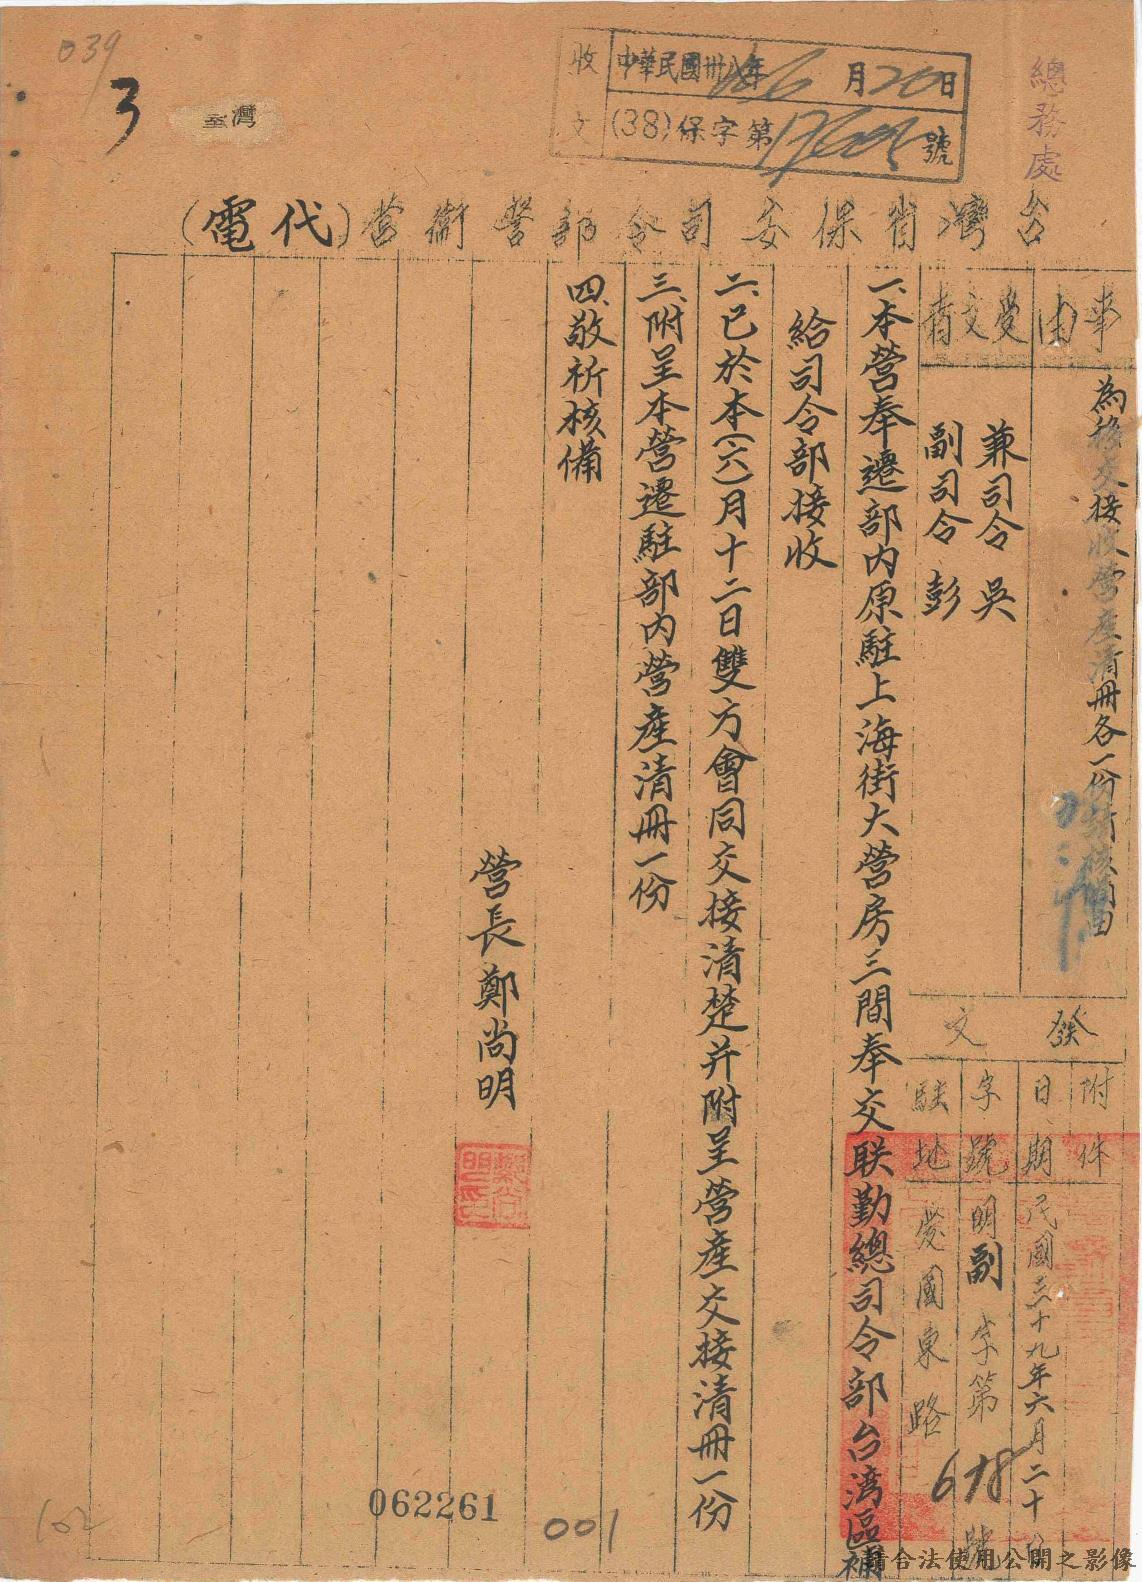 039
3
臺灣
收文
中華民國卅八年6月20日
(38)保字第號
總務處
台灣省保安司令部警衛營(代電)
事由
為移交接收營產清冊各一份祈核備由
受文者
兼司令 吳
副司令 彭
發文
附件
日期
民國三十九年六月二十日
字號
明副字第678號
駐地
愛國東路
一、本營奉遷部內原駐上海街大營房三間奉交联勤總司令部台湾區補
給司令部接收
二、已於本(六)月十二日雙方會同交接清楚并附呈營產交接清冊一份
三、附呈本營遷駐部內營產清冊一份
四、敬祈核備
營長 鄭尚明
鄭尚明印
062261
001
102
請合法使用公開之影像